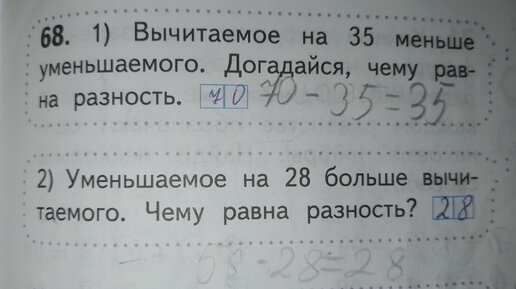 68. 1) Вычитаемое на 35 меньше
уменьшаемого. Догадайся, чему рав-
на разность. 70 70-35=35
2) Уменьшаемое на 28 больше вычи-
таемого. Чему равна разность? 28
58-28=28